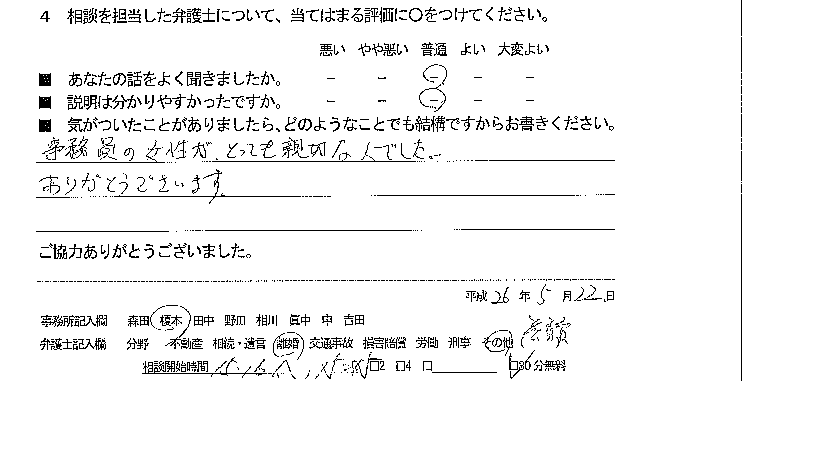 4 相談を担当した弁護士について、当てはまる評価に〇をつけてください。
悪い やや悪い 普通 よい 大変よい
■ あなたの話をよく聞きましたか。 － － － － －
■ 説明は分かりやすかったですか。 － － － － －
■ 気がついたことがありましたら、どのようなことでも結構ですからお書きください。
事務員の女性が、とっても親切な人でした。
ありがとうございます。
ご協力ありがとうございました。
平成 26 年 5 月 22 日
事務所記入欄 森田 榎本 田中 野田 相川 眞中 申 吉田
弁護士記入欄 分野 不動産 相続・遺言 離婚 交通事故 損害賠償 労働 刑事 その他
相談開始時間 □2 □4 □ □30分無料